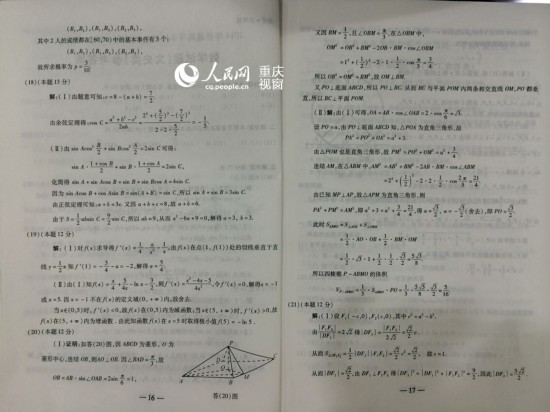 (B₁,B₂), (B₁,B₃), (B₂,B₃),
其中2人的成绩都在[60,70)中的基本事件有3个:
(B₁,B₂), (B₁,B₃), (B₂,B₃),
故所求概率为 p = 3/10
(18)(本题13分)
解:(Ⅰ)由题意可知:c = 8 - (a + b) = 7/2.
(Ⅱ)由 sin Acos² B/2 + sin Bcos² A/2 = 2sin C 可得:
sin A · (1 + cos B)/2 + sin B · (1 + cos A)/2 = 2sin C,
化简得 sin A + sin Acos B + sin B + sin Bcos A = 4sin C.
因为 sin Acos B + cos Asin B = sin(A + B) = sin C, 所以 sin A + sin B = 3sin C.
由正弦定理可知:a + b = 3c. 又因 a + b + c = 8, 故 a + b = 6.
由于 S = 1/2 absin C = 9/2 sin C, 所以 ab = 9, 从而 a² - 6a + 9 = 0, 解得 a = 3, b = 3.
(19)(本题12分)
解:(Ⅰ)对 f(x) 求导得 f′(x) = 1/4 - a/x² - 1/x, 由 f(x) 在点(1, f(1))处的切线垂直于直
线 y = 1/2 x 知 f′(1) = - 3/4 - a = -2, 解得 a = 5/4.
(Ⅱ)由(Ⅰ)知 f(x) = x/4 + 5/4x - ln x - 3/2, 则 f′(x) = (x² - 4x - 5)/4x², 令 f′(x) = 0, 解得 x = -1
或 x = 5. 因 x = -1 不在 f(x) 的定义域(0, +∞)内, 故舍去.
当 x∈(0,5)时, f′(x) < 0, 故 f(x) 在(0,5)内为减函数; 当 x∈(5, +∞)时, f′(x) > 0, 故
f(x) 在(5, +∞)内为增函数. 由此知函数 f(x) 在 x = 5 时取得极小值 f(5) = -ln 5.
(20)(本题12分)
(Ⅰ)证明:如答(20)图, 因 ABCD 为菱形, O 为
菱形中心, 连结 OB, 则 AO⊥OB. 因 ∠BAD = π/3, 故
OB = AB · sin∠OAB = 2sin π/6 = 1,
P
A
B
C
D
O
M
答(20)图
— 16 —
人民网 重庆视窗
cq.people.com.cn
又因 BM = 1/2, 且 ∠OBM = π/3, 在 △OBM 中,
OM² = OB² + BM² - 2OB · BM · cos∠OBM
= 1² + (1/2)² - 2 · 1 · 1/2 · cos π/3 = 3/4.
所以 OB² = OM² + BM², 故 OM⊥BM.
又 PO⊥底面 ABCD, 所以 PO⊥BC. 从而 BC 与平面 POM 内两条相交直线 OM, PO 都垂
直, 所以 BC⊥平面 POM.
(Ⅱ)解:由(Ⅰ)可得, OA = AB · cos∠OAB = 2 · cos π/6 = √3.
设 PO = a, 由 PO⊥底面 ABCD 知, △POA 为直角三角形, 故
PA² = PO² + OA² = a² + 3.
由 △POM 也是直角三角形, 故 PM² = PO² + OM² = a² + 3/4.
连结 AM, 在 △ABM 中, AM² = AB² + BM² - 2AB · BM · cos∠ABM
= 2² + (1/2)² - 2 · 2 · 1/2 · cos 2π/3 = 21/4.
由已知 MP⊥AP, 故 △APM 为直角三角形, 则
PA² + PM² = AM², 即 a² + 3 + a² + 3/4 = 21/4, 得 a = √3/2, a = - √3/2 (舍去), 即 PO = √3/2.
此时 S_ABMO = S_△AOB + S_△OMB
= 1/2 · AO · OB + 1/2 · BM · OM
= 1/2 · √3 · 1 + 1/2 · 1/2 · √3/2 = 5√3/8.
所以四棱锥 P - ABMO 的体积
V_P-ABMO = 1/3 · S_ABMO · PO = 1/3 · 5√3/8 · √3/2 = 5/16.
(21)(本题12分)
解:(Ⅰ)设 F₁(-c,0), F₂(c,0), 其中 c² = a² - b².
由 |F₁F₂|/|DF₁| = 2√2 得 |DF₁| = |F₁F₂|/2√2 = √2/2 c.
从而 S_△DF₁F₂ = 1/2 |DF₁| |F₁F₂| = √2/2 c² = √2/2, 故 c = 1.
从而 |DF₁| = √2/2, 由 DF₁⊥F₁F₂ 得 |DF₂|² = |DF₁|² + |F₁F₂|² = 9/2, 因此 |DF₂| = 3√2/2.
— 17 —